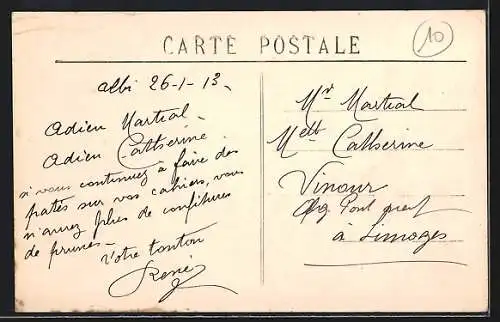 CARTE POSTALE
10
Albi 26-1-13
Adieu Martial
Adieu Catherine
si vous continuez à faire des
patés sur vos cahiers, vous
n'aurez plus de confitures
de prunes -
Votre tonton
René
Mr Martial
Melle Catherine
Vinour
Pont
à Limoges